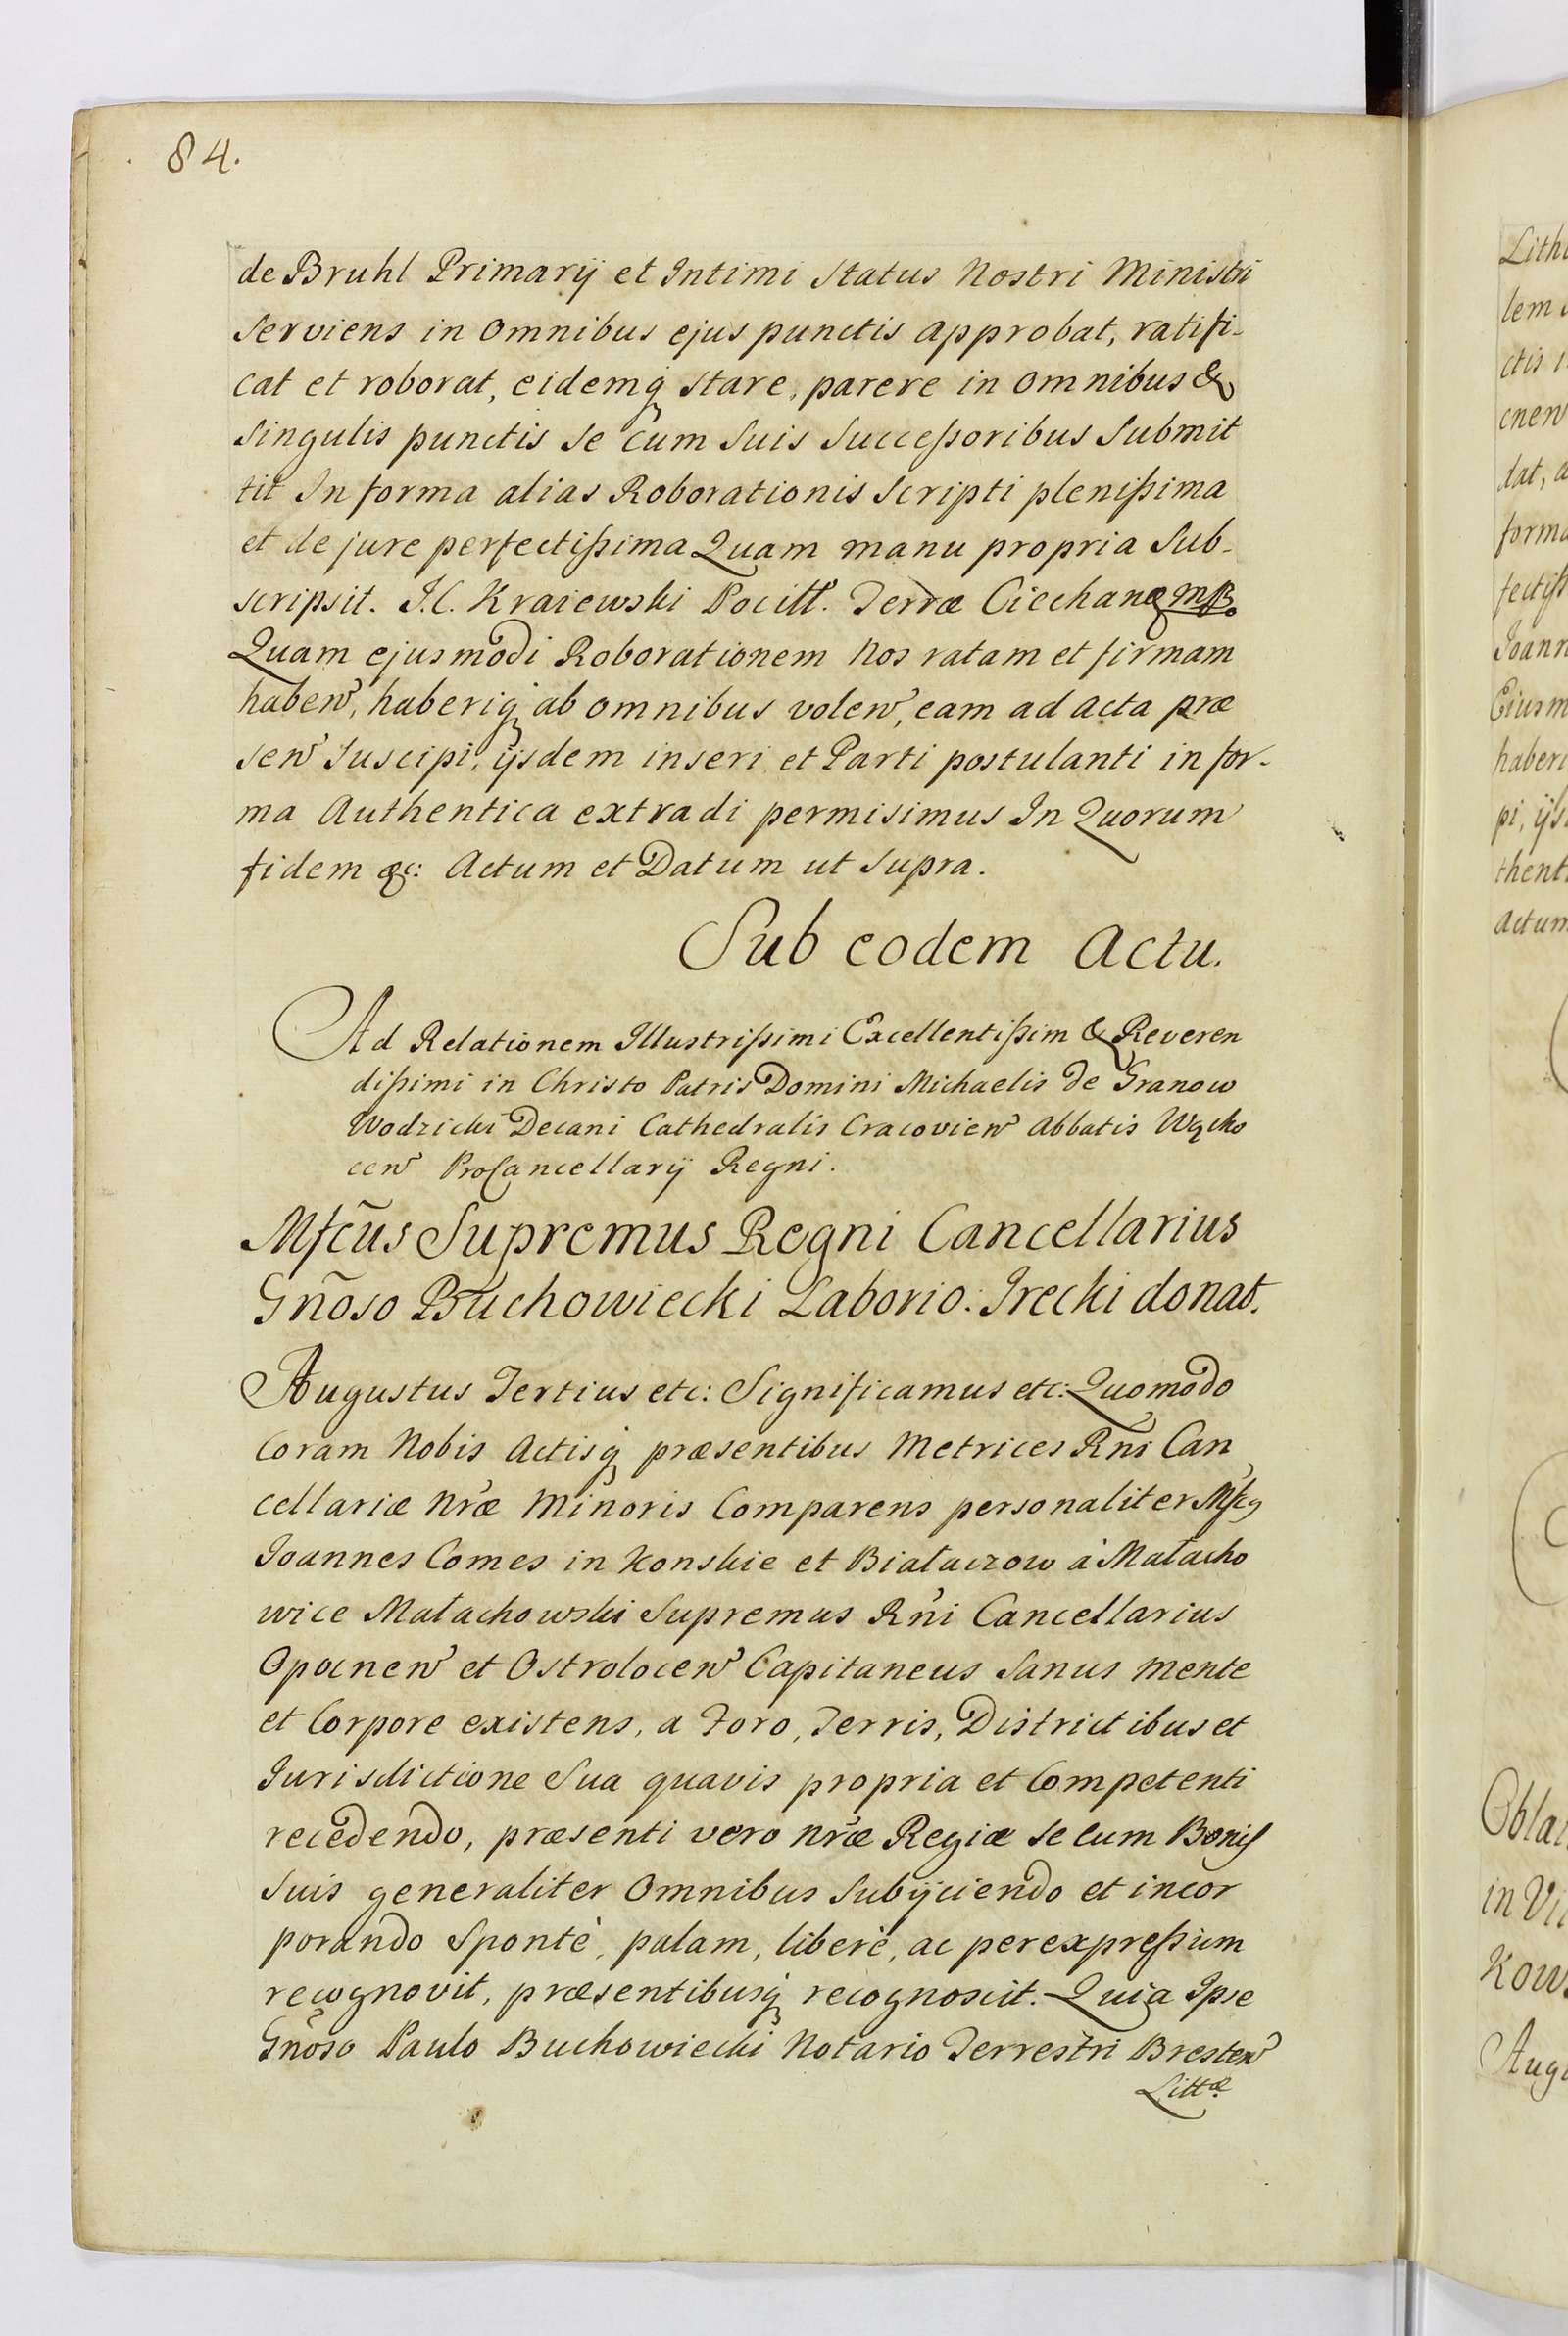 84.
de Bruhl Primarij et Intimi Status Nostri Ministri
serviens in omnibus ejus punctis approbat, ratifi-
cat et roborat, eidemq stare, parere in omnibus &
singulis punctis se cum suis Succeßoribus Submit
tit In forma alias Roborationis Scripti plenißima
et de jure perfectißima Quam manu propria Sub-
scripsit. J.C. Kraiewski Pocill. Terræ Ciechanæ mp.
Quam ejusmodi Roborationem Nos ratam et firmam
haben, haberiq ab omnibus volen, eam ad acta præ
sen Suscipi, ijsdem inseri et Parti postulanti in for-
ma Authentica extradi permisimus In Quorum
fidem &c: Actum et Datum ut supra.
Sub eodem Actu.
Ad Relationem Illustrißimi Excellentißim & Reveren
dißimi in Christo Patris Domini Michaelis de Granow
Wodzicki Decani Cathedralis Cracovien Abbatis Wącho
cen ProCancellarij Regni.
Mfcũs Supremus Regni Cancellarius
Gñoso Buchowiecki Laborio. Irecki donat.
Augustus Tertius etc: Significamus etc: Quomodo
Coram Nobis Actisq præsentibus Metrices Rni Can
cellariæ Nræ Minoris Comparens personaliter Mfcg
Joannes Comes in Konskie et Białaczow à Małacho
wice Małachowski Supremus Rni Cancellarius
Opocnen et Ostrolocen Capitaneus Sanus mente
et Corpore existens, a Foro, Terris, Districtibus et
Jurisdictione Sua quavis propria et Competenti
recedendo, præsenti vero nræ Regiæ se cum Bonis
Suis generaliter Omnibus Subijciendo et incor
porando Spontè, palam, liberè, ac per expreßum
recognovit, præsentibusq recognoscit. Quia Ipse
Gñoso Paulo Buchowiecki Notario Terrestri Bresten
Littæ